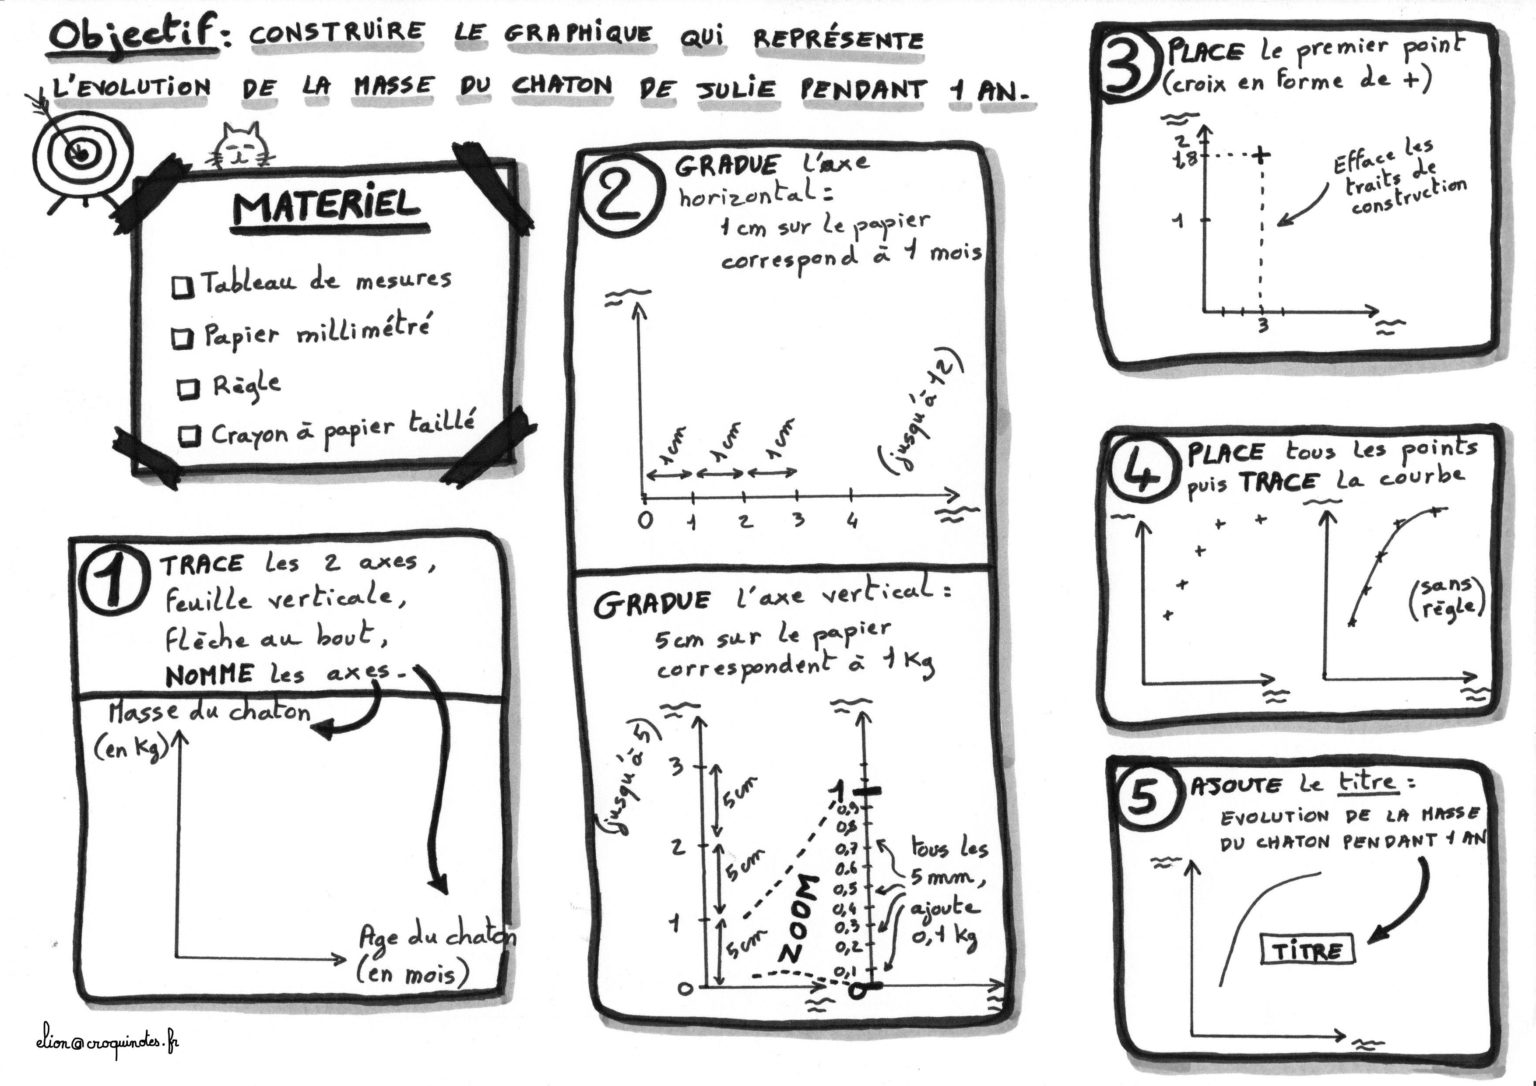 Objectif: CONSTRUIRE LE GRAPHIQUE QUI REPRÉSENTE
L'EVOLUTION DE LA MASSE DU CHATON DE JULIE PENDANT 1 AN.
MATERIEL
Tableau de mesures
Papier millimétré
Règle
Crayon à papier taillé
1 TRACE les 2 axes,
feuille verticale,
flèche au bout,
NOMME les axes.
Masse du chaton
(en Kg)
Age du chaton
(en mois)
2 GRADUE l'axe
horizontal:
1 cm sur le papier
correspond à 1 mois
(jusqu'à 12)
1cm 1cm 1cm
0 1 2 3 4
GRADUE l'axe vertical:
5cm sur le papier
correspondent à 1 Kg
(jusqu'à 5)
3
5cm
2
5cm
1
5cm
0
ZOOM
1
0,9
0,8
0,7
0,6
0,5
0,4
0,3
0,2
0,1
0
tous les
5 mm,
ajoute
0,1 kg
3 PLACE le premier point
(croix en forme de +)
2
1,8
1
3
Efface les
traits de
construction
4 PLACE tous les points
puis TRACE la courbe
(sans
règle)
5 AJOUTE le titre:
EVOLUTION DE LA MASSE
DU CHATON PENDANT 1 AN
TITRE
elion@croquinotes.fr